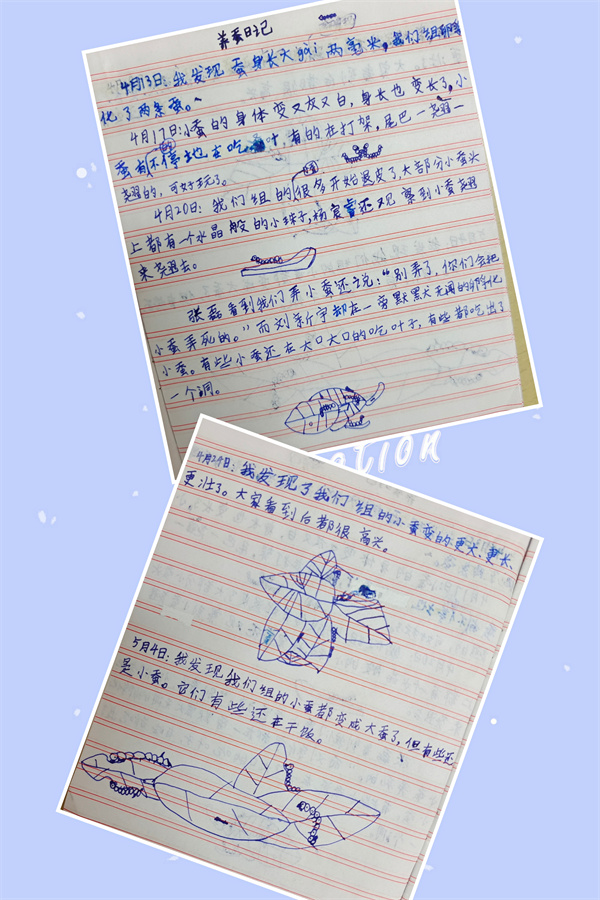 养蚕日记
4月13日:我发现蚕身长大约有两毫米,我们组孵
化了两条蚕。
4月17日:小蚕的身体变又灰又白,身长也变长了,小
蚕有的不停地在吃叶,有的在打架,尾巴一翘一
翘的,可好玩了。
4月20日:我们组的很多蚕开始退皮了,大部分小蚕头
上都有一个水晶般的小珠子,杨宸还观察到小蚕翘
来翘去。
张磊看到我们弄小蚕还说:“别弄了,你们会把
小蚕弄死的。”而刘新宇却在一旁默默无闻的孵化
小蚕。有些小蚕还在大口大口的吃叶子,有些都吃出了
一个洞。
otion
4月24日:我发现了我们组的小蚕变的更大、更长、
更壮了。大家看到后都很高兴。
5月4日:我发现我们组的小蚕都变成大蚕了,但有些还
是小蚕。它们有些还在干饭。